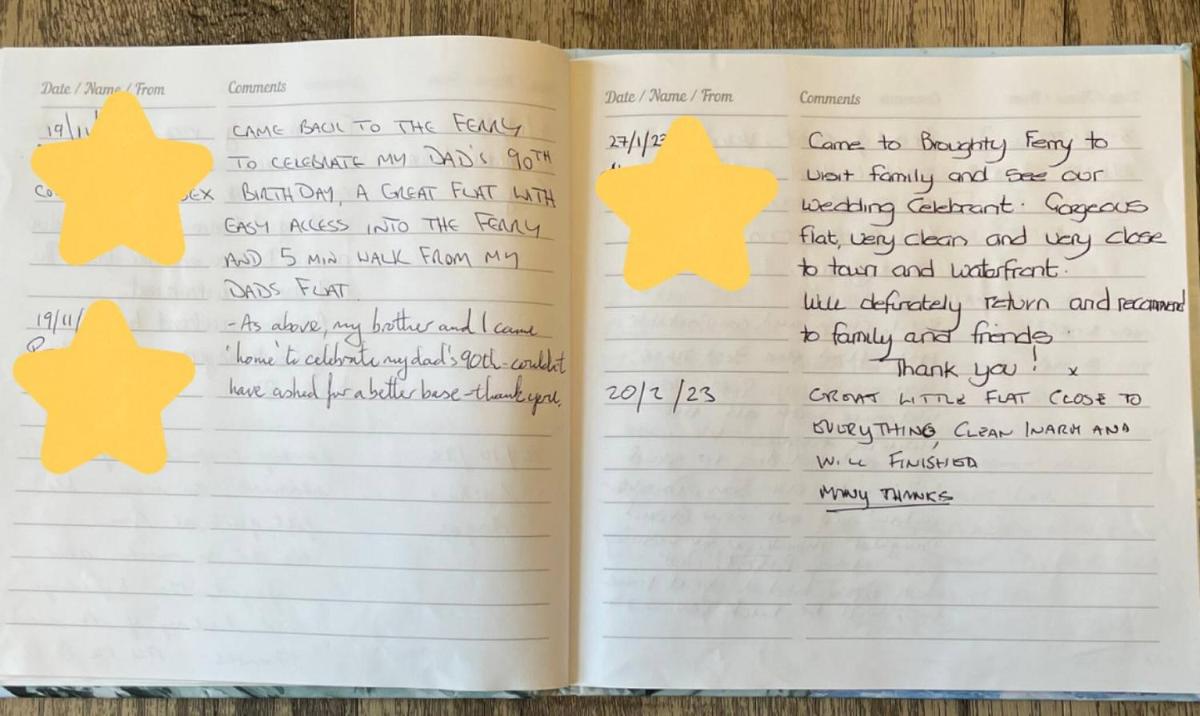 Date / Name / From Comments
19/11/ CAME BACK TO THE FERRY
TO CELEBRATE MY DAD'S 90TH
BIRTHDAY, A GREAT FLAT WITH
EASY ACCESS INTO THE FERRY
AND 5 MIN WALK FROM MY
DADS FLAT.
19/11/ -As above, my brother and I came
'home' to celebrate my dad's 90th - couldn't
have asked for a better base - thank you.
Date / Name / From Comments
27/1/23 Came to Broughty Ferry to
visit family and see our
wedding Celebrant. Gorgeous
flat, very clean and very close
to town and waterfront.
Will definately return and recommend
to family and friends
Thank you! x
20/2/23 GREAT LITTLE FLAT CLOSE TO
EVERYTHING, CLEAN WARM AND
WELL FINISHED
MANY THANKS